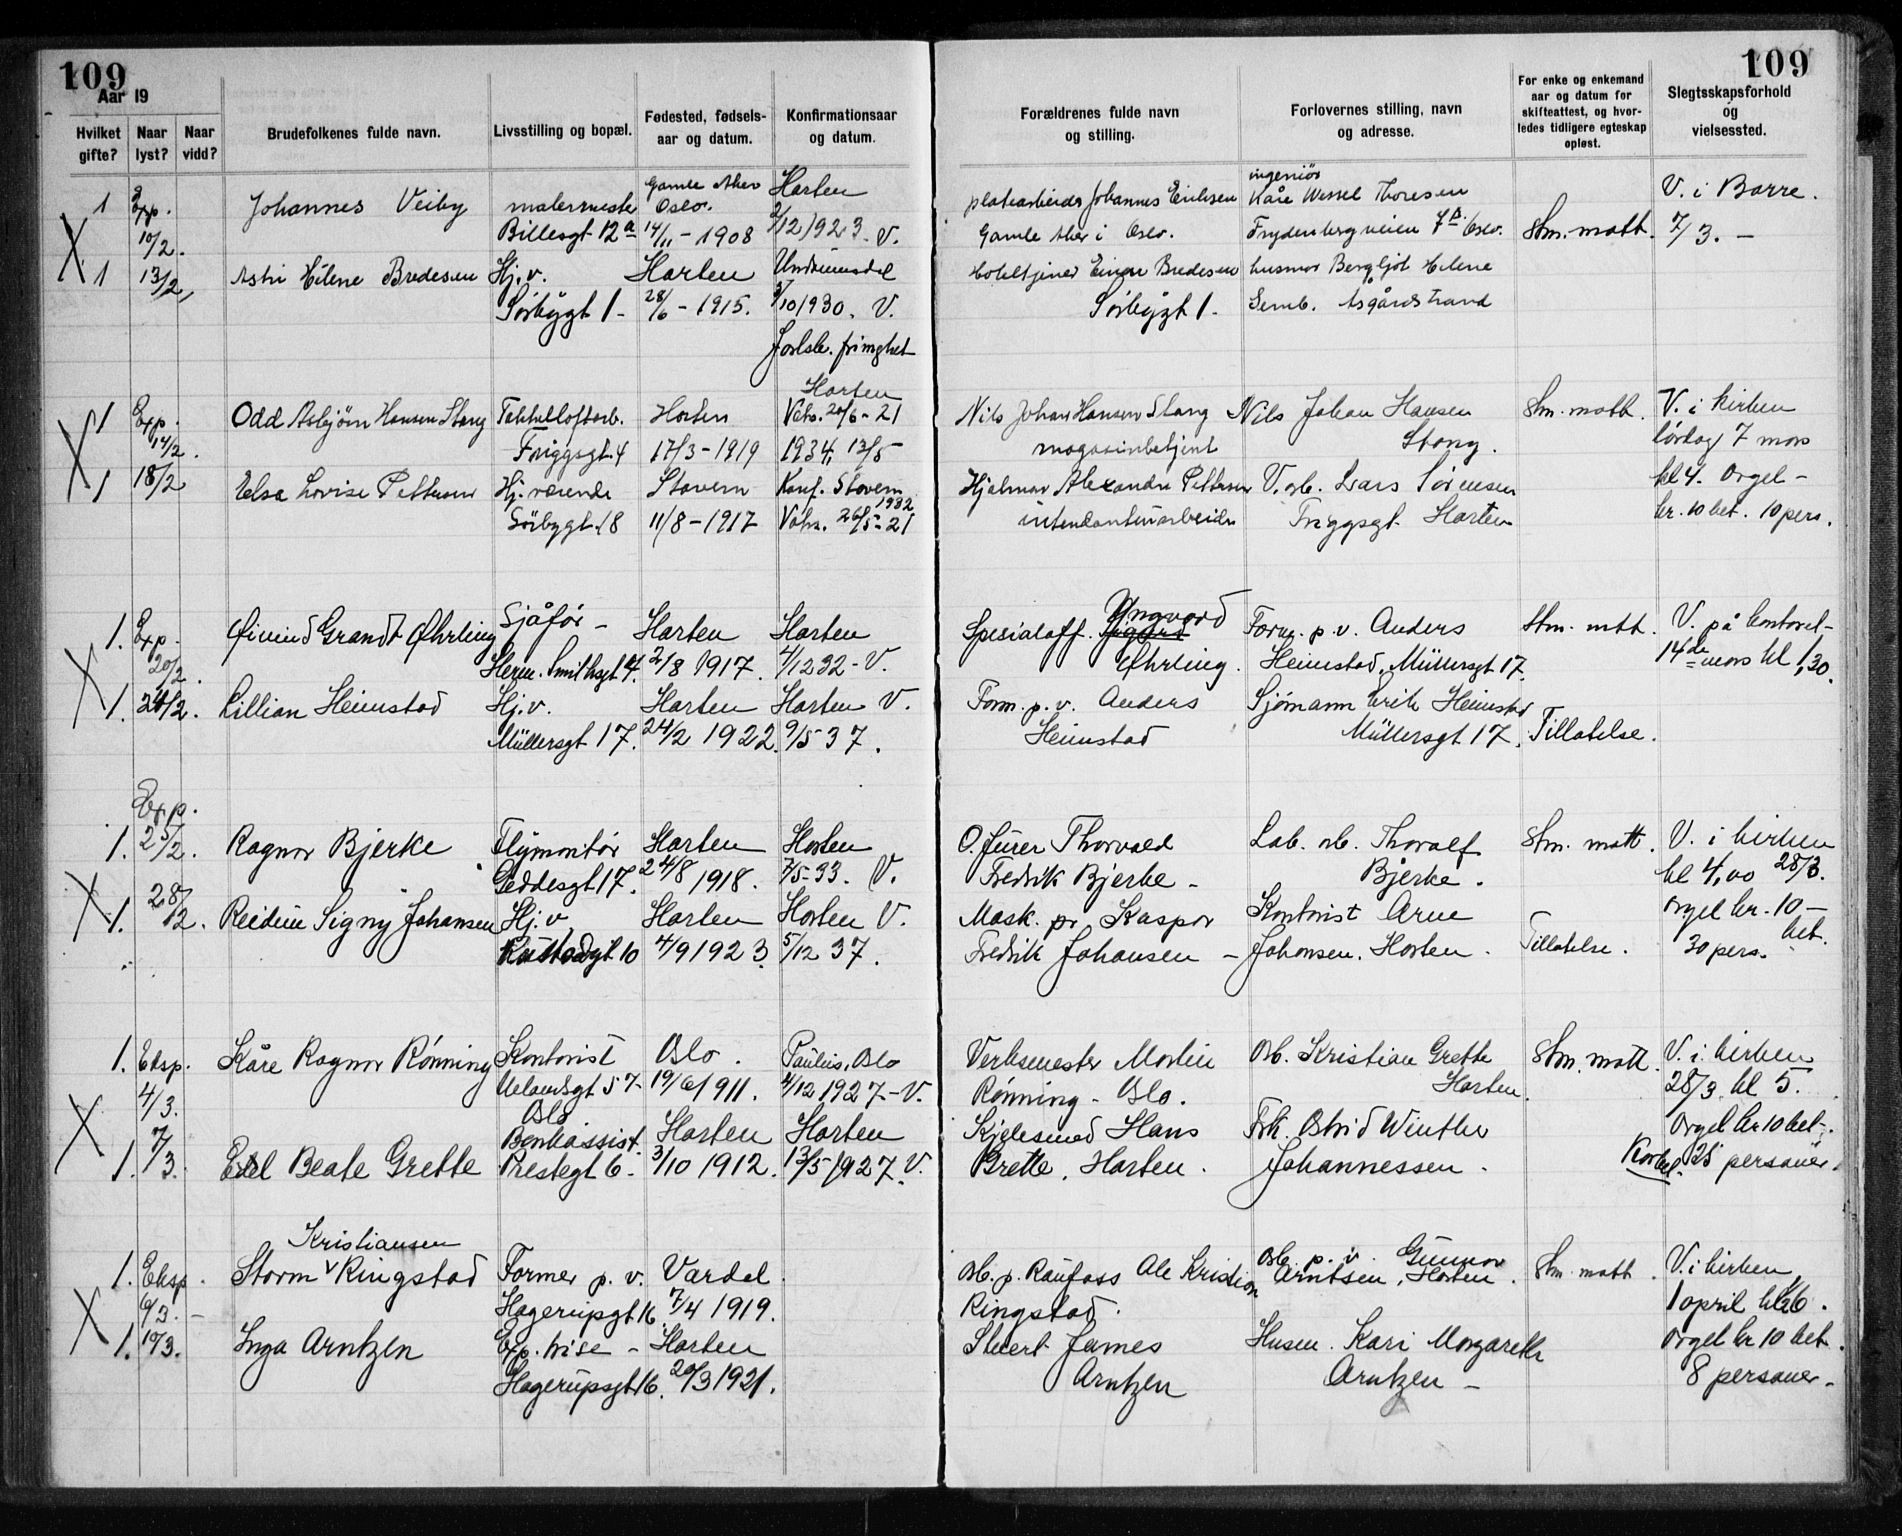 109
109
Aar 19
Hvilket gifte?
Naar lyst?
Naar vidd?
Brudefolkenes fulde navn.
Livsstilling og bopæl.
Fødested, fødsels-
aar og datum.
Konfirmationsaar
og datum.
Forældrenes fulde navn
og stilling.
Forlovernes stilling, navn
og adresse.
For enke og enkemand
aar og datum for
skifteattest, og hvor-
ledes tidligere egteskap
opløst.
Slegtsskapsforhold
og
vielsessted.
Gamle Aker Horten ingeniør
1 Exp. Johannes Veiby malermester Oslo. platearbeider Johannes Erichsen Kåre Wessel Thoresen V. i Borre.
10/2. Billesgt 12a 14/11 - 1908 2/12 1923. V. Gamle Aker i Oslo. Frydenbergveien Oslo. Stm. mott. 7/3. -
1 13/2, Astri Helene Bredesen Hj.v. Horten Undrumsdal Hoteltjener Einar Bredesen husmor Bergljot Helene
Sørbygt 1 - 28/6 - 1915. 5/10 1930. V. Sørbygt 1. Semb. Åsgårdstrand
Horten
1 Exp. Odd Asbjørn Hansen Stang Horten Vaks. 20/6 - 21 Nils Johan Hansen Stang Nils Johan Hansen Stm. mott. V. i kirken
14/2. Friggsgt. 4 17/3 - 1919 1934, 13/5 magasinbetjent Stang. lørdag 7 mars
1 18/2 Elsa Lovise Pettersen Hj. værende Stavern Konf. Stavern Hjalmar Alexander Pettersen V. arb. Lars Sørensen kl 4. Orgel -
Sørbygt. 18 11/8 - 1917 1932 Vaks. 26/5 - 21 intendanturarbeider Friggsgt. Horten kr. 10 bet. 10 pers.
Yngvard
1. Exp. Øivind Grandt Øhrling Sjåfør - Horten Horten Spesialoff. Form. p. v. Anders Stm. mtt. V. på kontoret -
20/2. Herm. Smithsgt 4. 2/8 1917. 4/12 32 - V. Øhrling. Heimstad, Müllersgt 17. 14de mars kl 1,30.
1. 24/2. Lillian Heimstad Hj.v. Horten Horten V. Form. p. v. Anders Sjømann Erik Heimstad
Müllersgt 17. 24/2 1922. 9/5 37. Heimstad Müllersgt 17. Tillatelse.
Exp.
1. 25/2. Ragnar Bjerke Flymontør Horten Horten O. fürer Thorvald Lab. arb. Thoralf Stm. mott. V. i kirken
Geddesgt 17. 24/8 1918. 7/5 - 33. V. Fredrik Bjerke - Bjerke. kl 4,00 28/3.
1. 28/2. Reidun Signy Johansen Hj.v. Horten Horten V. Mask. pr Kaspar Kontorist Arne Orgel kr. 10 - bet.
10 4/9 1923. 5/12 37. Fredrik Johansen - Johansen. Horten. Tillatelse. 30 pers.
1. Eksp. Kåre Ragnar Rönning Kontorist Oslo. Paulus, Oslo Verksmester Martin Arb. Kristian Grette Stm. mott. V. i kirken
4/3. Uelandsgt 57 - 19/6 1911. 4/12 1927 - V. Rønning - Oslo. Horten. 28/3 kl 5.
Oslo
7/3. Bankassist. Horten Horten Kjelesmed Hans Frk. Astrid Winther Orgel kr 10 bet -
1. Beate Grette Prestegt 6 - 3/10 1912. 13/5 1927. V. Grette, Horten. Johannessen. 25 personer.
Kristiansen
1. Eksp. Storm Ringstad Former p. v. Vardal. Arb. p. Raufoss Ole Kristian Arb. p. v. Gunnar Arntsen, Horten. Stm. mott. V. i kirken
6/3. - Hagerupsgt 16. 7/4 1919. Ringstad. 1 april kl 6.
1. 10/3. Inga Arntzen Exp. trise - Horten Stuert James Husm. Kari Margarethe Orgel kr 10 bet.
Hagerupsgt 16. 20/3 1921. Arntzen Arntzen - 8 personer -